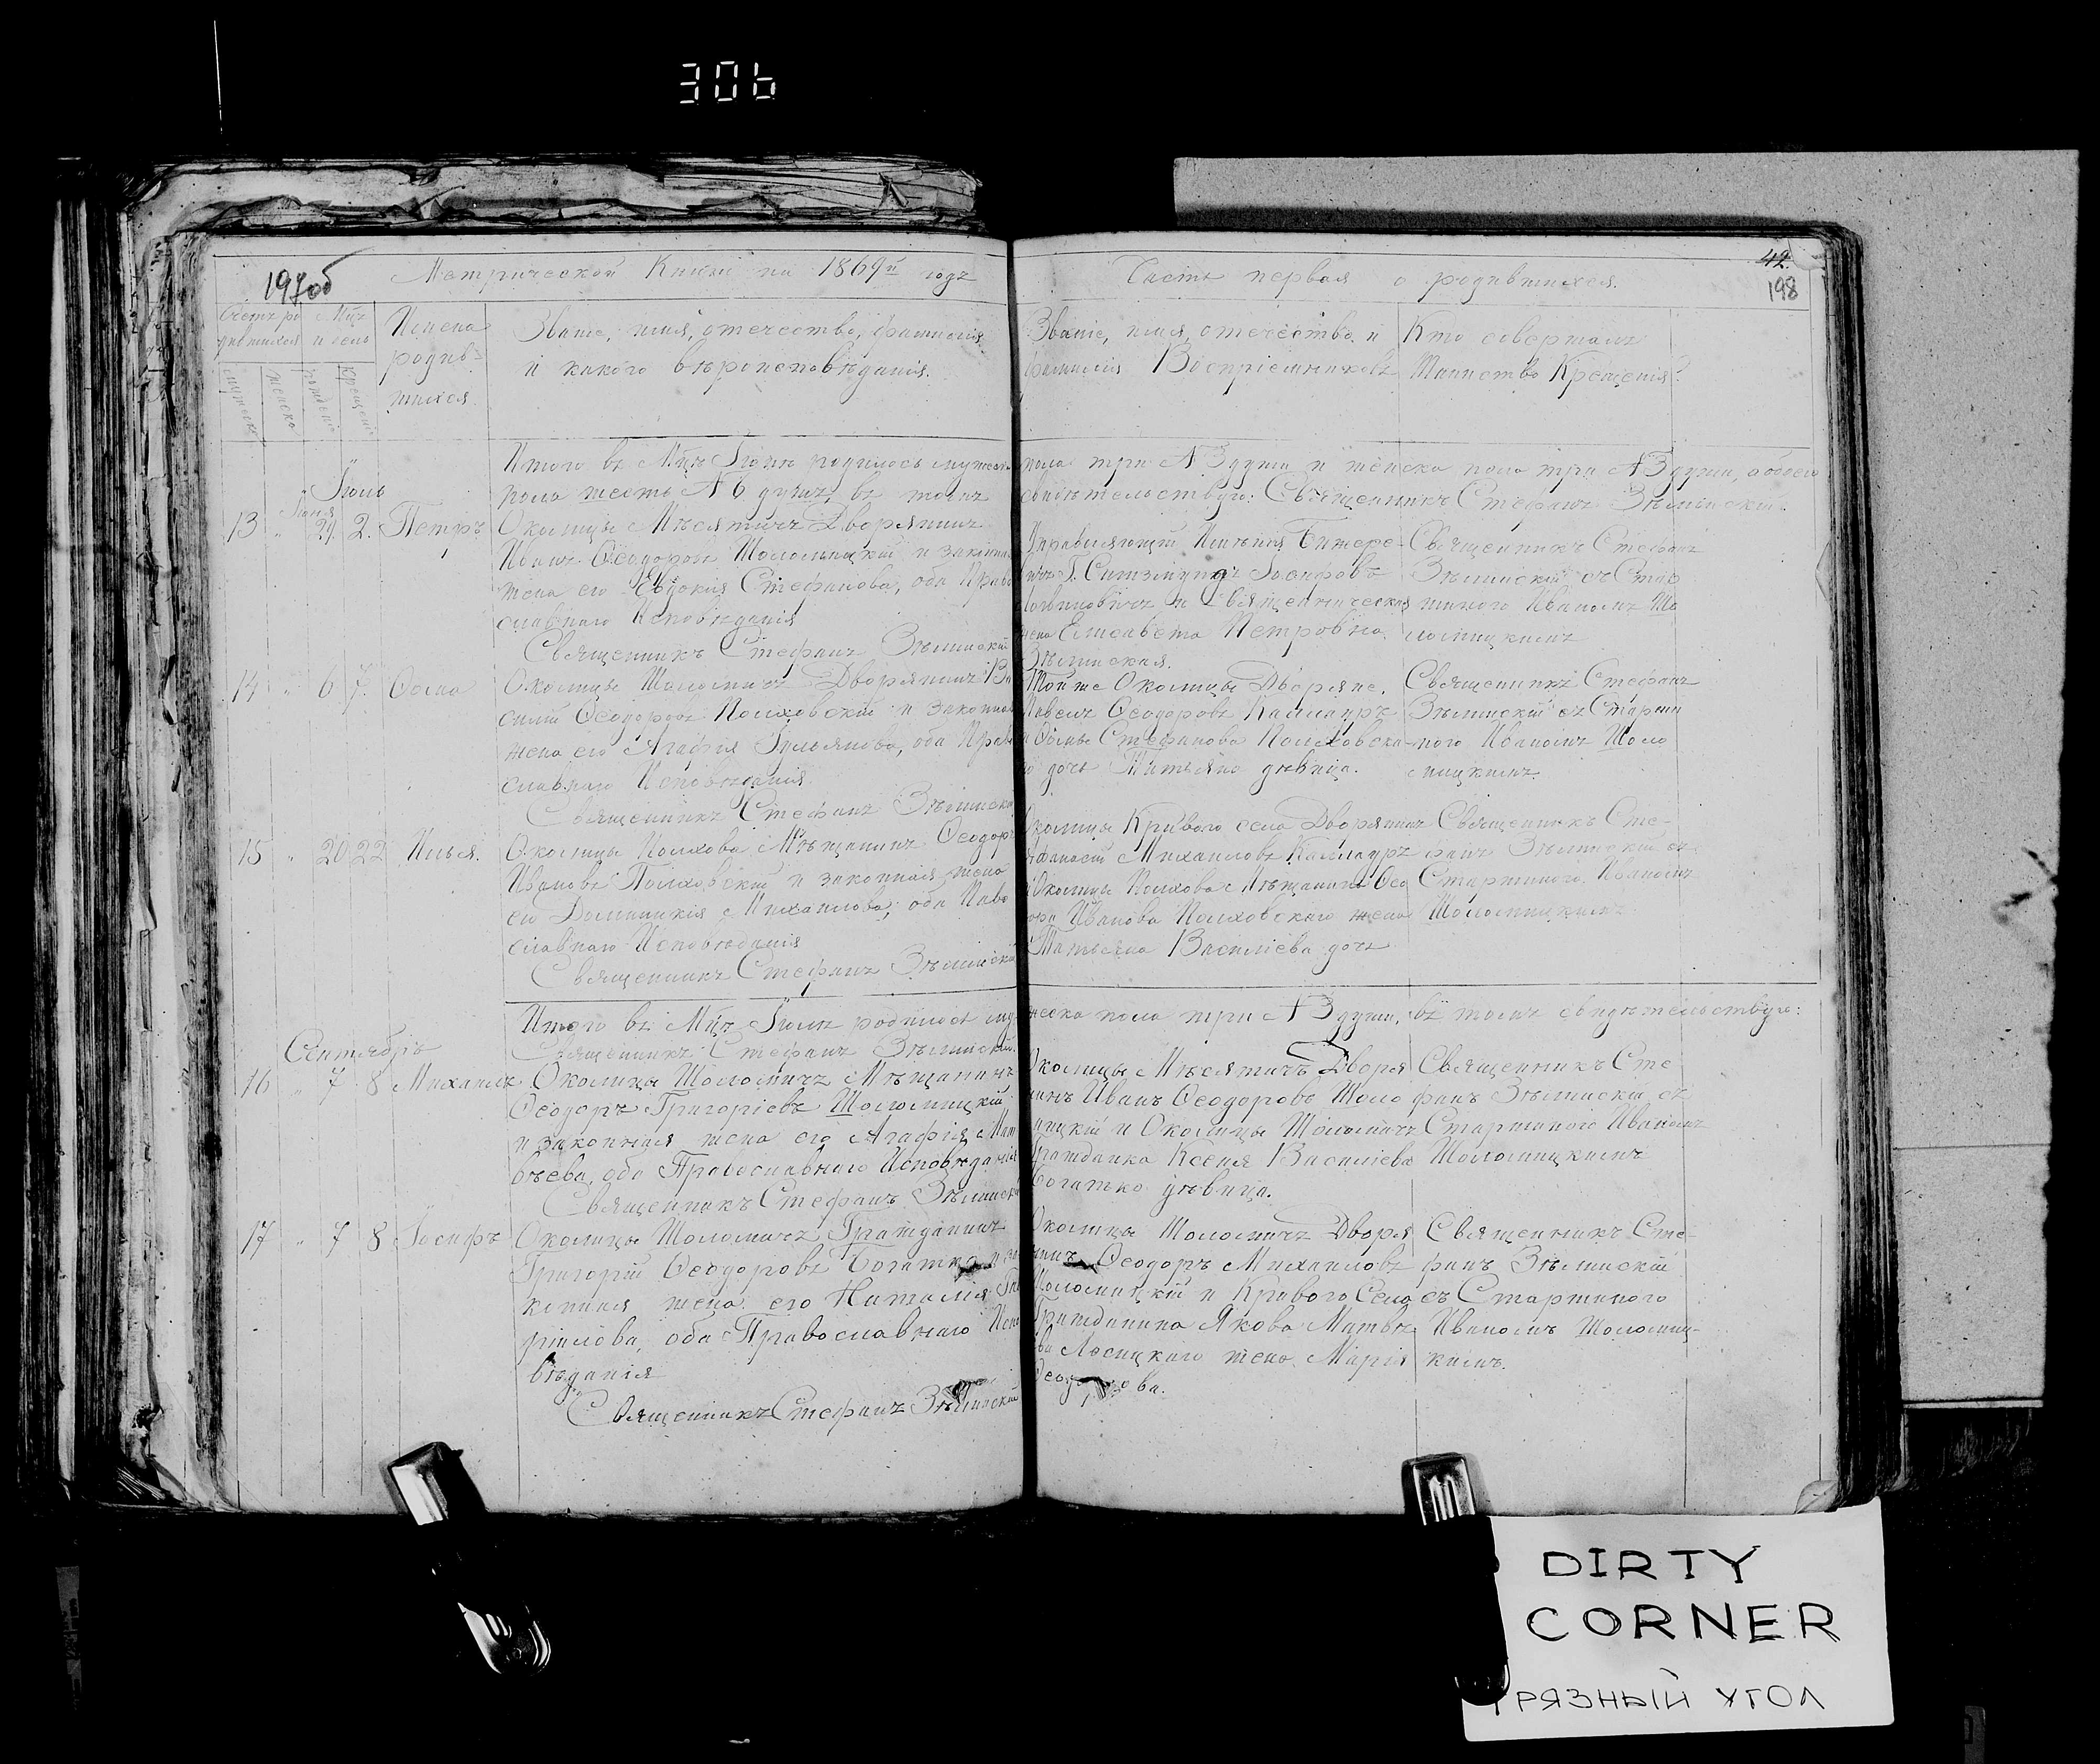 306
197об
Метрической Книги на 1869й годъ
Часть первая о родившихся.
42.
198
Счетъ ро
дившихся
Мцъ
и день
Имена
родив-
шихся
Званіе, имя, отечество, фамилія
и какого вѣроисповѣданія.
Званіе, имя, отечество и
фамилія Воспріемниковъ
Кто совершалъ
Таинство Крещенія?
мужеска
женска
рожденія
крещенія
Итого въ Мцѣ Іюнѣ родилось мужеск
пола три А 3 души и женска пола три А 3 души, а обоего
пола шесть А 6 душъ, въ томъ
свидѣтельствую: Священникъ Стефанъ Зѣлинскій.
Іюль
Іюня
13 " 29. 2. Петръ
Околицы Мѣсятичъ Дворянинъ
Иванъ Ѳеодоровъ Шоломицкій и законная
жена его Евдокія Стефанова, оба Право
славнаго Исповѣданія
Священникъ Стефанъ Зѣлинскій
Управляющій Имѣнія
Г. Сигизмундъ Іосифовъ
и Священническая
жена Елисавета Петровна
Зѣлинская.
Священникъ Стефанъ
Зѣлинскій съ Стар
шиного Иваномъ Шо
ломицкимъ
14 " 6 7. Ѳома
Околицы Шоломичъ Дворянинъ Ва
силій Ѳеодоровъ Полховскій и законная
жена его Агафія Іульянова, оба Право
славнаго Исповѣданія
Священникъ Стефанъ Зѣлинскій
Тойже Околицы Дворяне,
Павелъ Ѳеодоровъ Каллауръ
и Ѳомы Стефанова Полховска-
го дочь Татьяна дѣвица.
Священникъ Стефанъ
Зѣлинскій съ Старши
ного Иваномъ Шоло
мицкимъ.
15 " 20 22 Илья.
Околицы Полхова Мѣщанинъ Ѳеодоръ
Ивановъ Полховскій и законная жена
его Домникія Михаилова, оба Паво
славнаго Исповѣданія
Священникъ Стефанъ Зѣлинскій
Околицы Кривого села Дворянинъ
Афанасій Михаиловъ Каллауръ
и Околицы Полхова Мѣщанина Ѳео
дора Иванова Полховскаго жена
Татьяна Василіева дочь
Священникъ Сте-
фанъ Зѣлинскій съ
Старшиного Иваномъ
Шоломицкимъ.
Итого въ Мцѣ Іюлѣ родилось му-
жеска пола три А 3 души, въ томъ свидѣтельствую:
Священникъ Стефанъ Зѣлинскій.
Сентябрь
16 " 7 8 Михаилъ
Околицы Шоломичъ Мѣщанинъ
Ѳеодоръ Григоріевъ Шоломицкій
и законная жена его Агафія Мат
вѣева, оба Православнаго Исповѣданія
Священникъ Стефанъ Зѣлинскій
Околицы Мѣсятичъ Дворя
нинъ Иванъ Ѳеодоровъ Шоло
мицкій и Околицы Шоломичъ
Гражданка Ксенія Василіева
Богатко дѣвица.
Священникъ Сте
фанъ Зѣлинскій съ
Старшиного Иваномъ
Шоломицкимъ
17 " 7 8 Іосифъ
Околицы Шоломичъ Гражданинъ
Григорій Ѳеодоровъ Богатко и за
конная жена его Наталія Гав
ріилова, оба Православнаго Испо
вѣданія
Священникъ Стефанъ Зѣлинскій
Околицы Шоломичъ Дворя
нинъ Ѳеодоръ Михаиловъ
Шоломицкій и Кривого Села
Гражданина Якова Матвѣ
ева Лосицкаго жена Марія
Ѳеодорова.
Священникъ Сте-
фанъ Зѣлинскій
съ Старшиного
Иваномъ Шоломиц-
кимъ.
DIRTY
CORNER
ГРЯЗНЫЙ УГОЛ